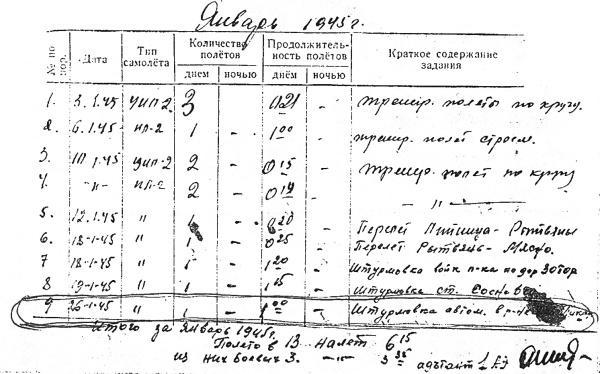 Январь 1945г.
№ по пор. Дата Тип самолёта Количество полётов Продолжительность полётов Краткое содержание задания
днем ночью днём ночью
1. 3.1.45 УИЛ-2 3 - 0 21 - тренир. полеты по кругу.
2. 6.1.45 ИЛ-2 1 - 1 00 - тренир. полет строем.
3. 11.1.45 УИЛ-2 2 - 0 15 - тренир. полет по кругу
4. -"- ИЛ-2 2 - 0 14 - -"-
5. 12.1.45 " 1 - 0 20 - Перелет
6. 18-1-45 " 1 - 0 25 - Перелет
7 18-1-45 " 1 - 1 20 - Штурмовка войск п-ка по дор
8 19-1-45 " 1 - 1 15 - Штурмовка ст.
9 26-1-45 " 1 - 1 00 - Штурмовка автом. в р-не
Итого за январь 1945г.
Полетов 13 налет 6 15
из них боевых 3. -"- 3 35 адъютант